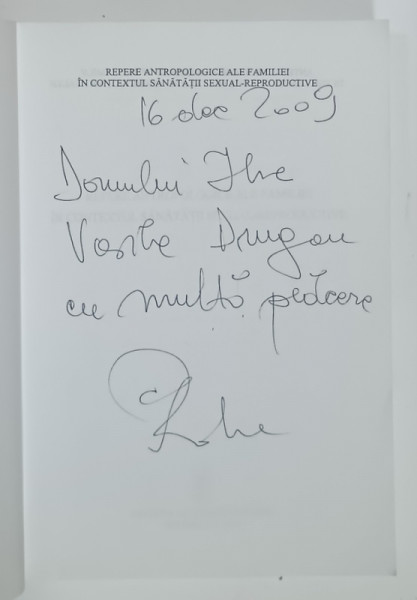 REPERE ANTROPOLOGICE ALE FAMILIEI
ÎN CONTEXTUL SĂNĂTĂȚII SEXUAL-REPRODUCTIVE
16 dec 2009
Domnului Ilie
Vasile Drugan
cu multă plăcere